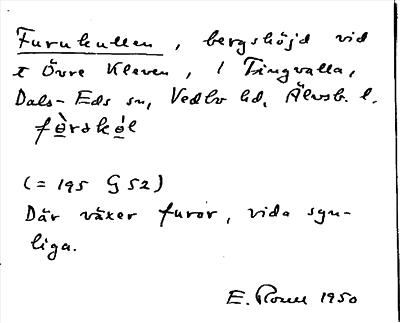 Furukullen, bergshöjd vid
t Övre Kleven, 1 Tingvalla,
Dals-Eds sn, Vedbo hd, Älvsb. l.
fø̀rₔkø̀l
(= 195 G 52)
Där växer furor, vida syn-
liga.
E. 1950